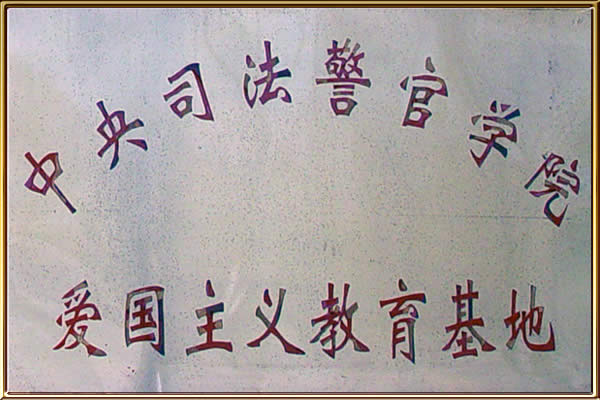 中央司法警官学院
爱国主义教育基地